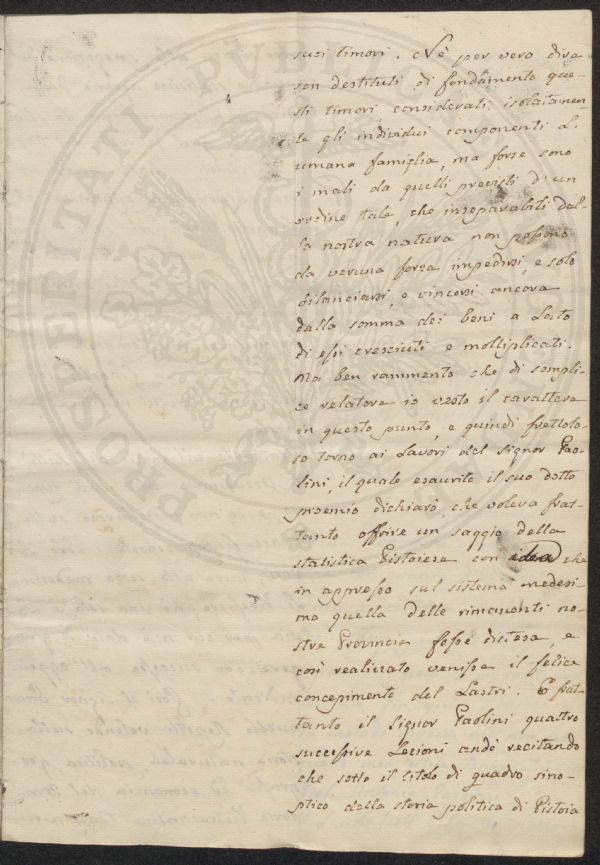 suoi timori. Nè per vero dire
son destituti di fondamento que-
sti timori considerati isolatamen-
te gli individui componenti l'
umana famiglia, ma forse sono
i mali da quelli previsti d'un
ordine tale, che inseparabili dal-
la nostra natura non possono
da veruna forza impedirsi, e solo
bilanciarsi, e vincersi ancora
dalla somma dei beni a lato
di essi cresciuti e moltiplicati.
Ma ben rammento che di sempli-
ce relatore io vesto il carattere
in questo punto, e quindi frettolo-
so torno ai lavori del Signor Pao-
lini, il quale esaurito il suo dotto
proemio dichiarò, che voleva frat-
tanto offrire un saggio della
statistica Pistoiese con idea che
in appresso sul sistema medesi-
mo quella delle rimanenti no-
stre Provincie fosse distesa, e
così realizzato venisse il felice
concepimento del Lastri. E frat-
tanto il Signor Paolini quattro
successive Lezioni andò recitando
che sotto il titolo di quadro sino-
ptico della storia politica di Pistoia
PROSPERITATI PUBL